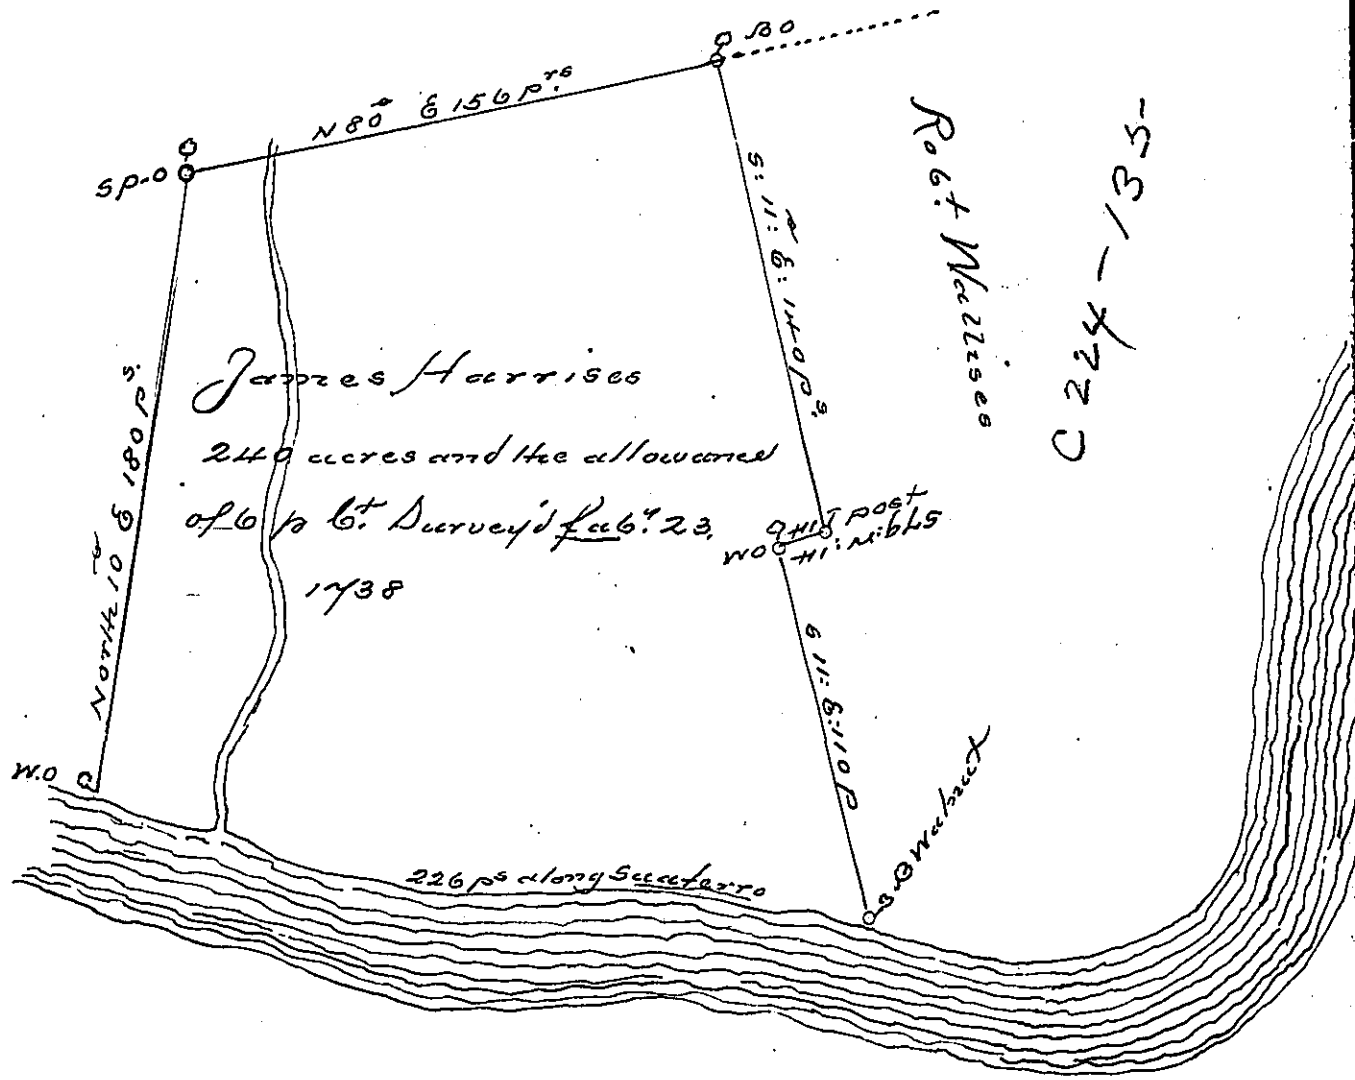 B O
N 80° E 156 p.rs
SP-O
S: 11:° E: 140 p.s
Rob.t Wallises
C 224-135-
North 10° E 180 p.s
James Harrises
240 acres and the allowance
of 6 p C.t Survey'd Feb.y 23.
1738
post
WO
S 11: E: 110 p
W.O
B Walnut
226 ps along